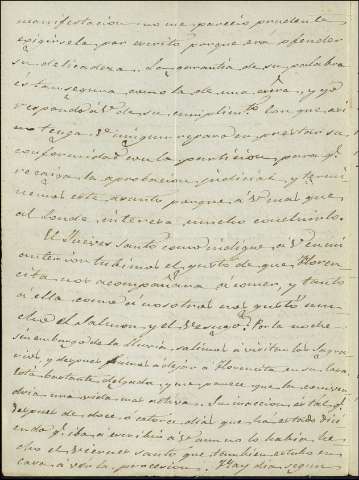 manifestacion no me pareció prudente
exigirsela por escrito porque era ofender
su delicadeza. La garantia de su palabra
es tan segura como la de una y yo
respondo á V. de su cumplim.to Con que asi
no tenga V. ningun reparo en prestar su
conformidad con la particion para q.e
recaiga la aprobacion judicial, y termi
nemos este asunto porque á V. mas que
al Conde interesa mucho concluirlo.
El Jueves Santo como indiqué á V. en mi
anterior tubimos el gusto de que Floren-
cita nos acompañara á comer, y tanto
á ella como á nosotros nos gustó mu-
cho el Salmon y el Besugo. Por la noche
sin embargo de la lluvia salimos á visitar los Sagra
rios y despues fuimos á dejar á Florencita en su casa
está bastante delgada, y me parece que la conven
dria una vida mas activa. Su inaccion es tal q.e
despues de doce á catorce dias que há estado dici
endo q.e iba á escribir á V. aun no lo habia he
cho el Viernes Santo que tambien estubo en
casa á vér la procesion. Hay dias segun